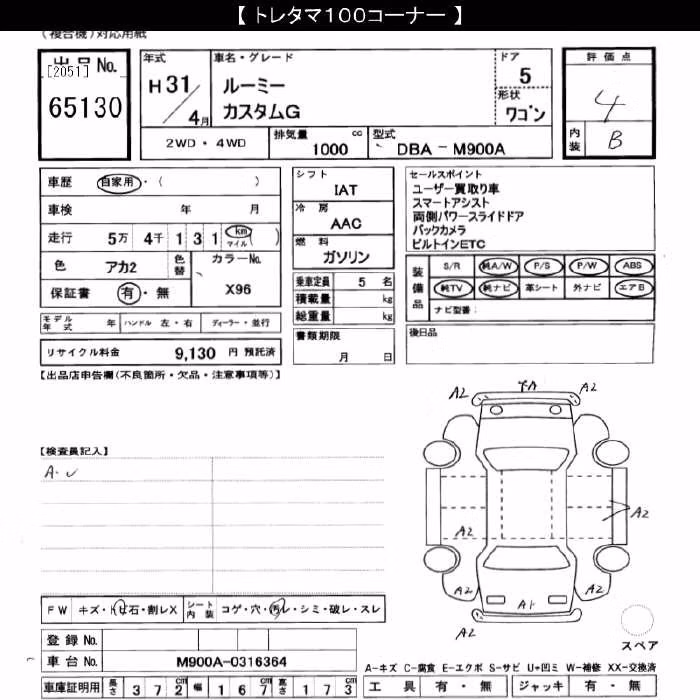 【 トレタマ100コーナー 】
(複合機)対応用紙
出品 No.
[2051]
65130
年式
H 31
4 月
車名・グレード
ルーミー
カスタムG
ドア
5
形状
ワゴン
評価点
4
内装
B
2WD・4WD
排気量
cc
1000
型式
DBA - M900A
車歴
自家用・( )
車検
年 月
走行
5万 4千 1 3 1 km マイル ( )
色
アカ2
色替
カラーNo.
保証書
有・無
X96
シフト
IAT
冷房
AAC
燃料
ガソリン
乗車定員 5 名
積載量 kg
総重量 kg
書類期限
月 日
セールスポイント
ユーザー買取り車
スマートアシスト
両側パワースライドドア
バックカメラ
ビルトインETC
装備品
S/R 純A/W P/S P/W ABS
純TV 純ナビ 革シート 外ナビ エアB
ナビ型番:
後日品
モデル年式 年 ハンドル 左・右 ディーラー・並行
リサイクル料金 9,130 円 預託済
【出品店申告欄(不良箇所・欠品・注意事項等)】
【検査員記入】
A・U
A2 A2
A2
A2
A2 A2
A1
A2
スペア
FW キズ・トビ石・割レX シート内装 コゲ・穴・汚レ・シミ・破レ・スレ
登録 No.
車台 No. M900A-0316364
車庫証明用 長さ 3 7 2 cm 幅 1 6 7 cm 高さ 1 7 3 cm
A-キズ C-腐食 E-エクボ S-サビ U+凹ミ W-補修 XX-交換済
工具 有・無 ジャッキ 有・無